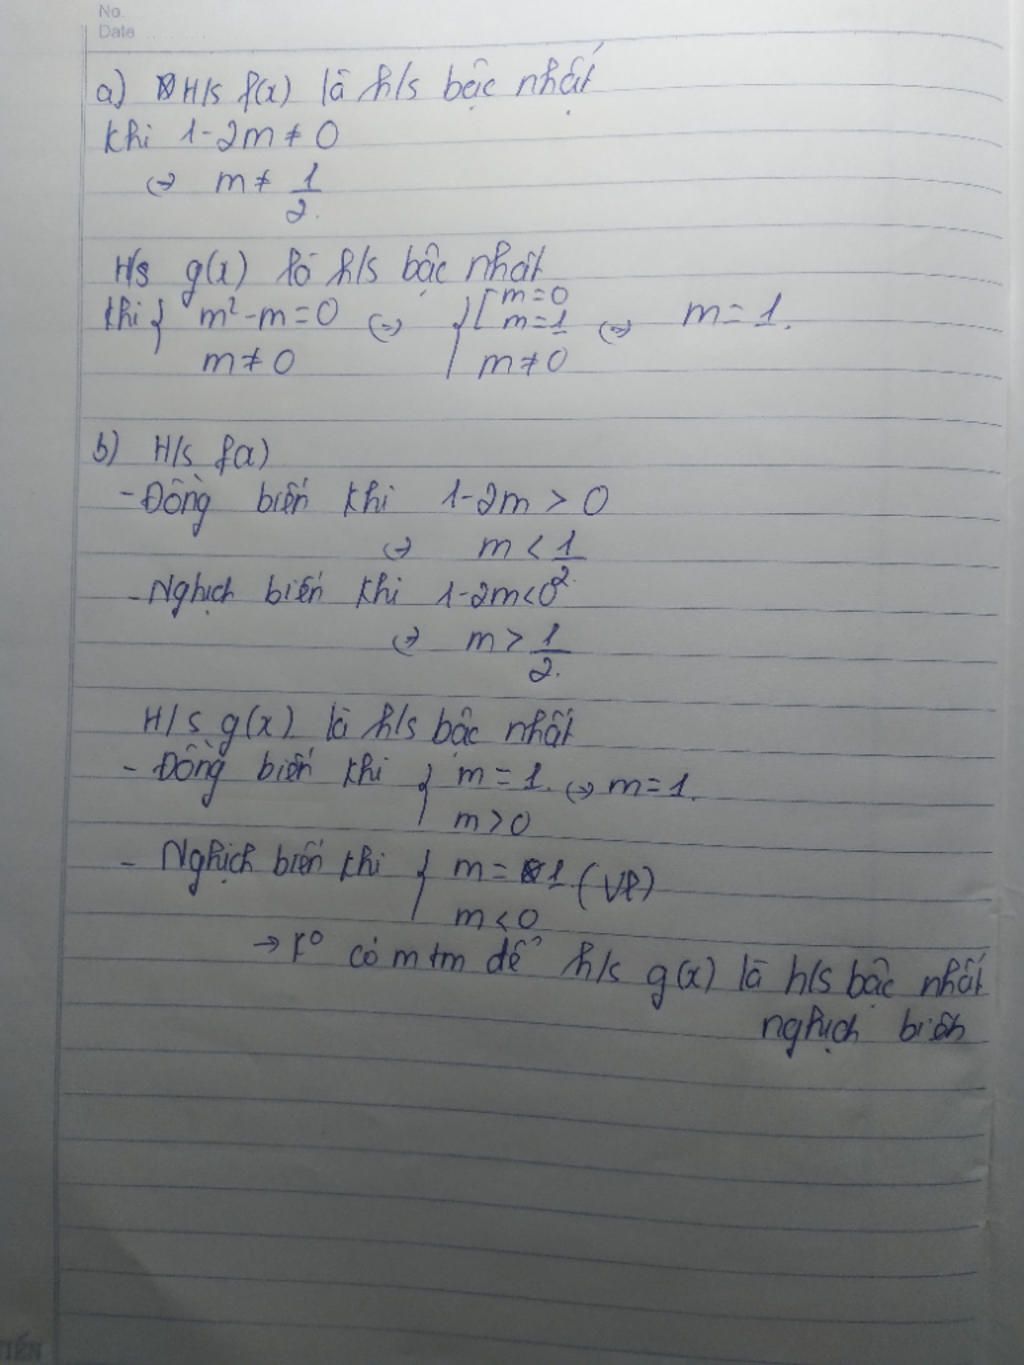 No.
Date
a) H/s f(x) là h/s bậc nhất
khi 1-2m ≠ 0
⇔ m ≠ 1/2.
H/s g(x) là h/s bậc nhất
khi { m²-m=0 ⇔ { [ m=0 m=1 ⇔ m=1.
m≠0 m≠0
b) H/s f(x)
- Đồng biến khi 1-2m > 0
⇔ m < 1/2.
- Nghịch biến khi 1-2m<0
⇔ m > 1/2.
H/s g(x) là h/s bậc nhất
- Đồng biến khi { m=1. ⇔ m=1.
m>0
- Nghịch biến khi { m=1 (VL)
m<0
→ k° có m tm để h/s g(x) là h/s bậc nhất
nghịch biến